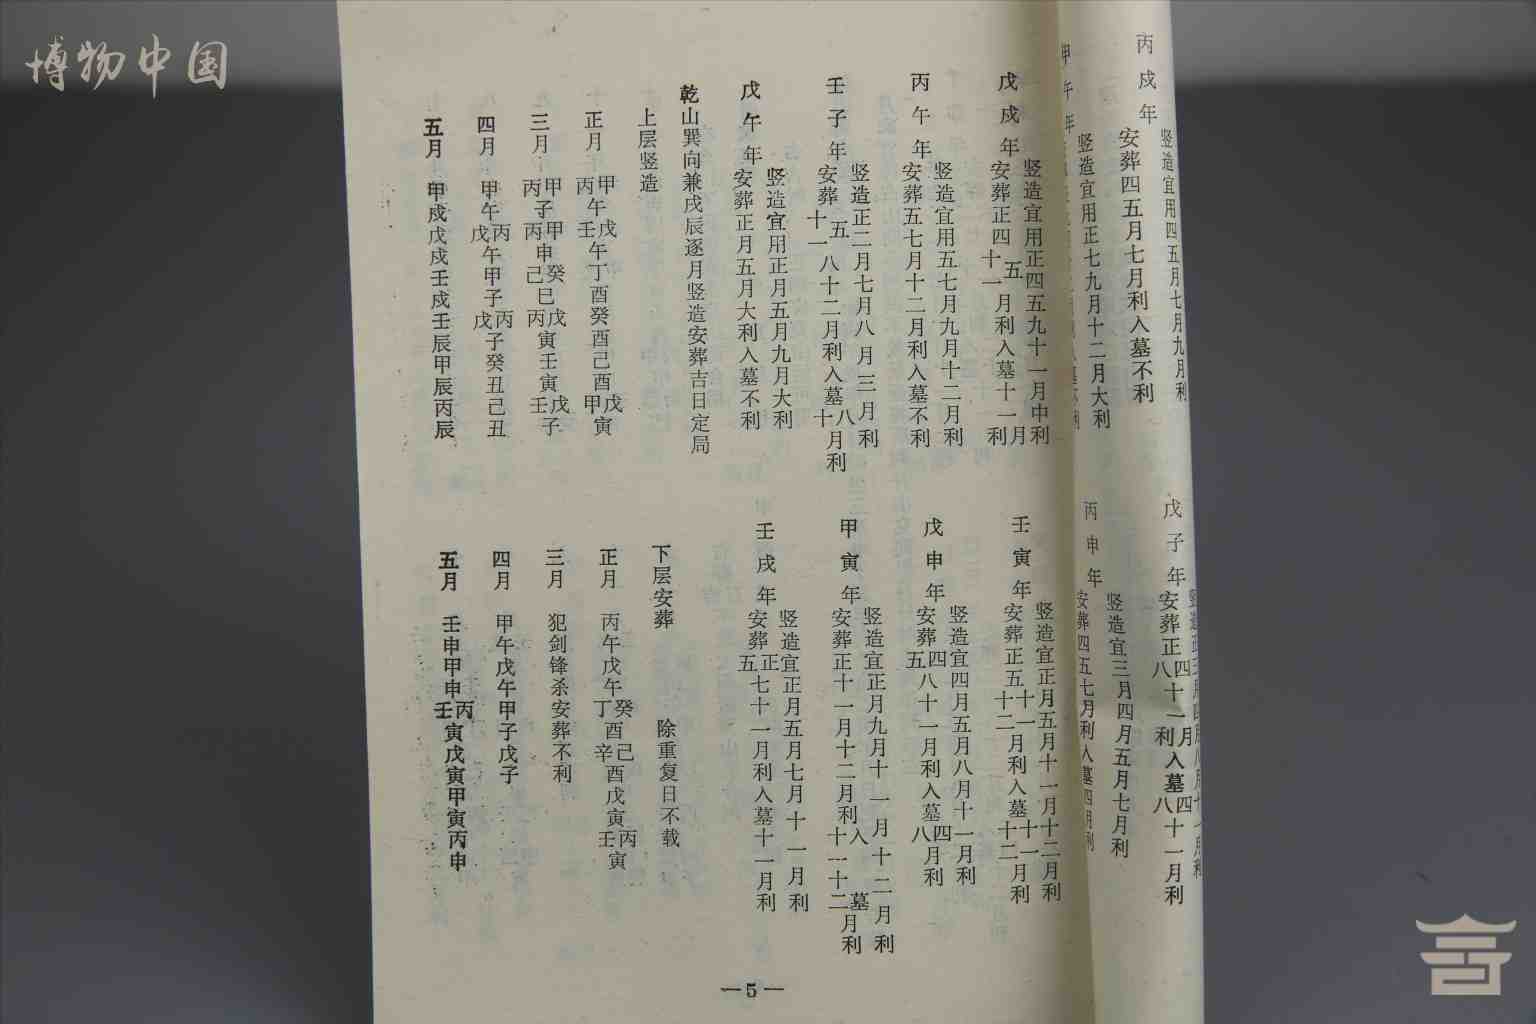 博物中国
丙戍年
竖造宜用四五月七月九月利
安葬四五月七月利入墓不利
甲午年
竖造宜用正七九月十二月大利
戊戍年
竖造宜用正四五九十一月中利
安葬正四五十一月利入墓十一月利
丙午年
竖造宜用五七月九月十二月利
安葬五七月十二月利入墓不利
壬子年
竖造正二月七月八月三月利
安葬五十一八十二月利入墓八十月利
戊午年
竖造宜用正月五月九月大利
安葬正月五月大利入墓不利
戊子年
安葬正四八十一月利入墓四八十一月利
丙申年
竖造宜三月四月五月七月利
安葬四五七月利入墓四月利
壬寅年
竖造宜正月五月十一月十二月利
安葬正五十一十二月利入墓十一十二月利
戊申年
竖造宜四月五月八月十一月利
安葬四五八十一月利入墓四八月利
甲寅年
竖造宜正月九月十一月十二月利
安葬正十一月十二月利入墓十一十二月利
壬戍年
竖造宜正月五月七月十一月利
安葬正五七十一月利入墓十一月利
乾山巽向兼戍辰逐月竖造安葬吉日定局
上层竖造
正月 甲丙午戊壬午丁酉癸酉己酉戊甲寅
三月 甲丙子甲丙申癸己巳戊丙寅壬寅戊壬子
四月 甲午丙戊午甲子丙戊子癸丑己丑
五月 甲戍戊戍壬戍壬辰甲辰丙辰
下层安葬 除重复日不载
正月 丙午戊午癸丁酉己辛酉戊寅丙壬寅
三月 犯剑锋杀安葬不利
四月 甲午戊午甲子戊子
五月 壬申甲申丙壬寅戊寅甲寅丙申
—5—